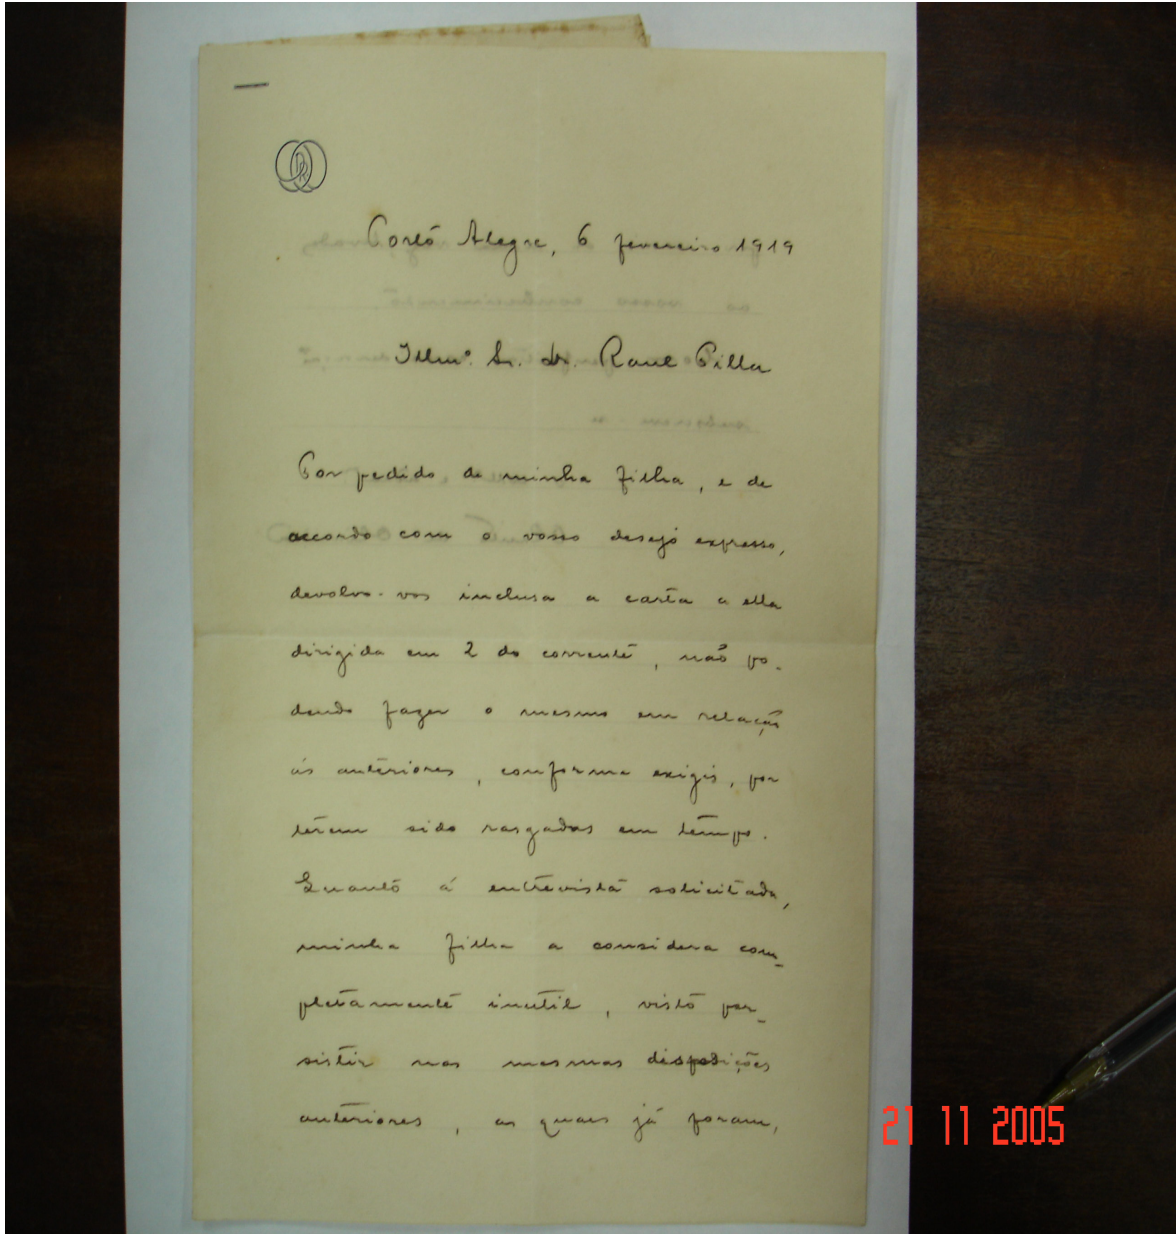 Porto Alegre, 6 fevereiro 1919
Illmº. Sr. Dr. Raul Pilla
Por pedido de minha filha, e de
accordo com o vosso desejo expresso,
devolvo-vos inclusa a carta a ella
dirigida em 2 do corrente, não po-
dendo fazer o mesmo em relação
ás anteriores, conforme exigis, por
terem sido rasgadas em tempo.
Quanto á entrevista solicitada,
minha filha a considera com-
pletamente inutil, visto per-
sistir nas mesmas disposições
anteriores, as quaes já foram,
21 11 2005